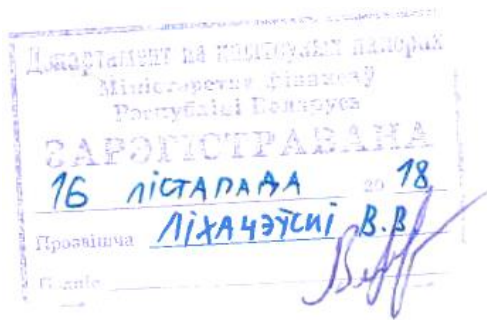 Дэпартамент па каштоўных паперах
Міністэрства фінансаў
Рэспублікі Беларусь
ЗАРЭГІСТРАВАНА
16 лістапада 20 18
Прозвішча Ліхачэўскі В.В.
Подпіс